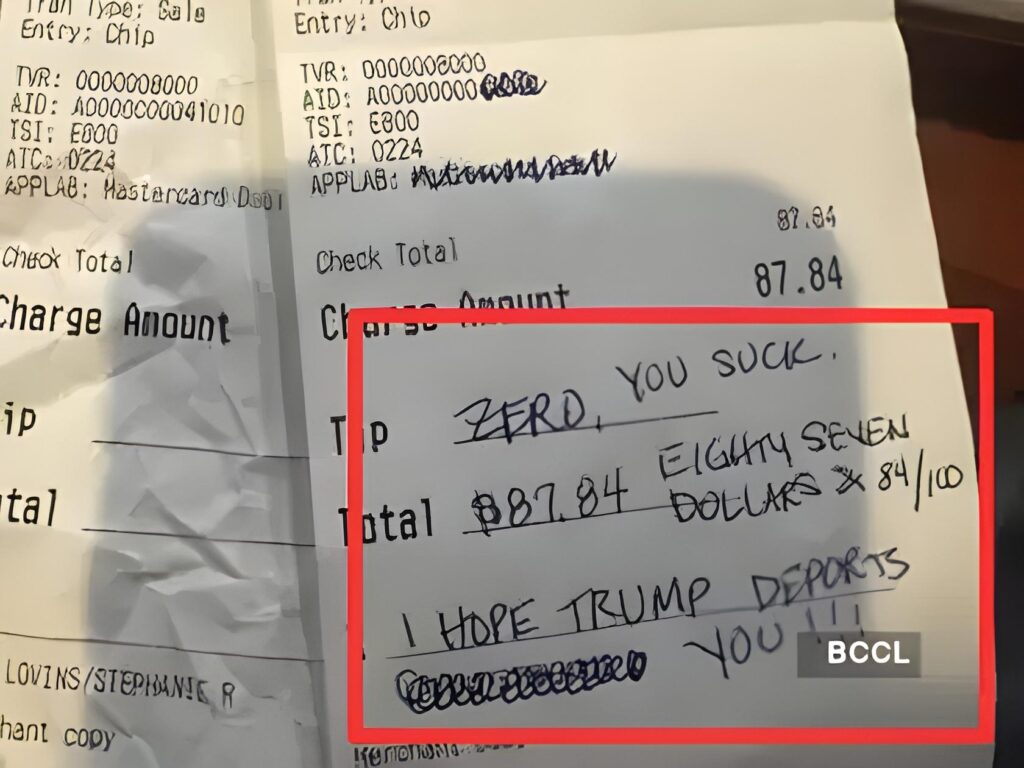 Tran Type: Sale
Entry: Chip
TVR: 0000008000
AID: A0000000041010
TSI: E800
ATC: 0224
APPLAB: Mastercard
Check Total
Charge Amount
ip
tal
LOVINS/STEPHANIE R
hant copy
Entry: Chip
TVR: 0000008000
AID: A00000000
TSI: E800
ATC: 0224
APPLAB:
87.84
Check Total
Charge Amount 87.84
Tip ZERO, YOU SUCK.
Total $87.84 EIGHTY SEVEN
DOLLARS & 84/100
I HOPE TRUMP DEPORTS
YOU!!!
BCCL